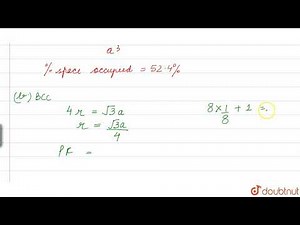 a³
% space occupied = 52.4%
(b) BCC
4r = √3a
r = √3a/4
8×1/8 + 1 =
PF =
doubtnut